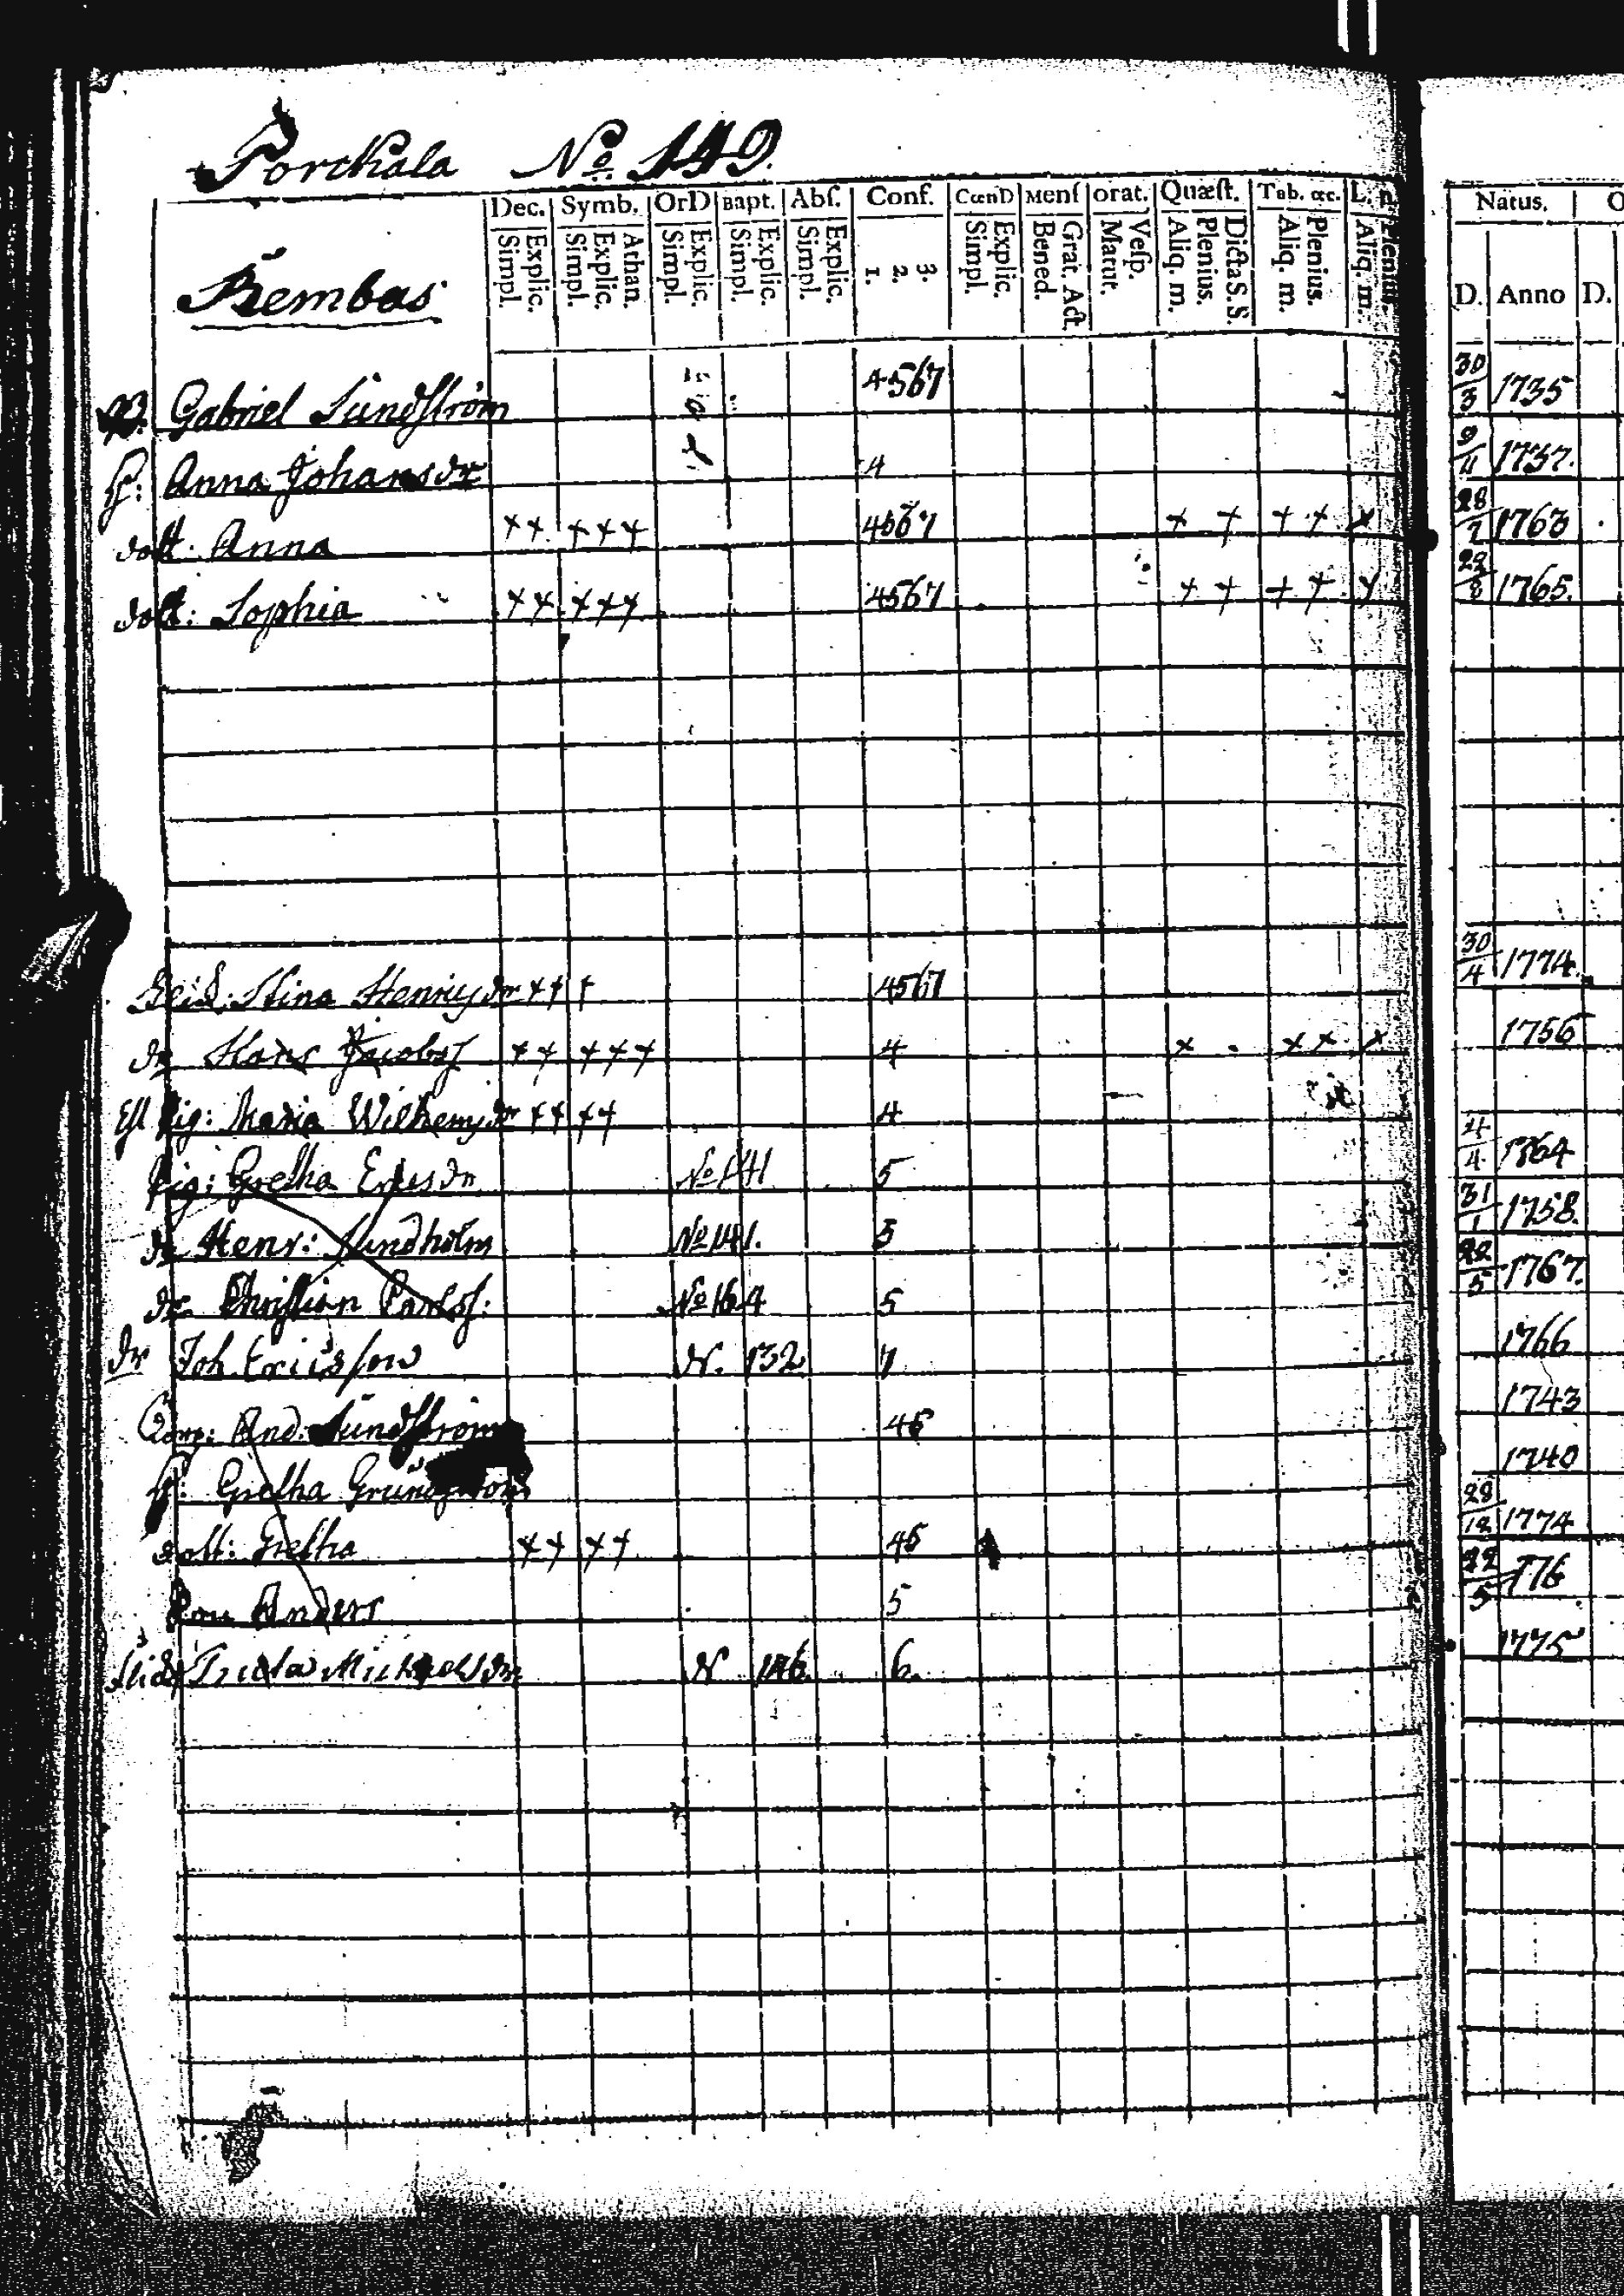 Porckala No. 149.
Dec. Symb. OrD Bapt. Abſ. Conf. CœnD Menſ orat. Quæſt. Tab. œc. L. n. Natus.
Simpl. Explic. Simpl. Explic. Athan. Simpl. Explic. Simpl. Explic. Simpl. Explic. 1. 2. 3. Simpl. Explic. Bened. Grat. Act. Matut. Veſp. Aliq. m. Plenius. Dicta S. S. Aliq. m. Plenius. Aliq. m. Plenius. D. Anno D.
Rembas
Gabriel Sundström 4567 30/3 1735
h: Anna Johansdr 4 9/4 1737.
dott: Anna ++ +++ 4567 + + + + + 28/7 1763
dott: Sophia ++ +++ 4567 + + + + + 1765.
Stina Henricsdr ++ + 4567 30/4 1774
dr Hans Jacobss ++ +++ 4 + . ++ + 1756
pig: Maria Wilhemsdr ++ ++ 4
pig: Gretha Ericsdr No 141 5 4/4 1764
dr Henr: Lindholm No 141. 5 31/1 1758.
dr Christian Carlss: No 164 5 22/5 1767.
dr Joh. Ericsson N. 132 7 1766
And: Sundström 45 1743
h: Gretha 1740
dott: Gretha ++ ++ 45 28/12 1774
Son Anders 5 22/5 776
Michelsdr N 6. 1775